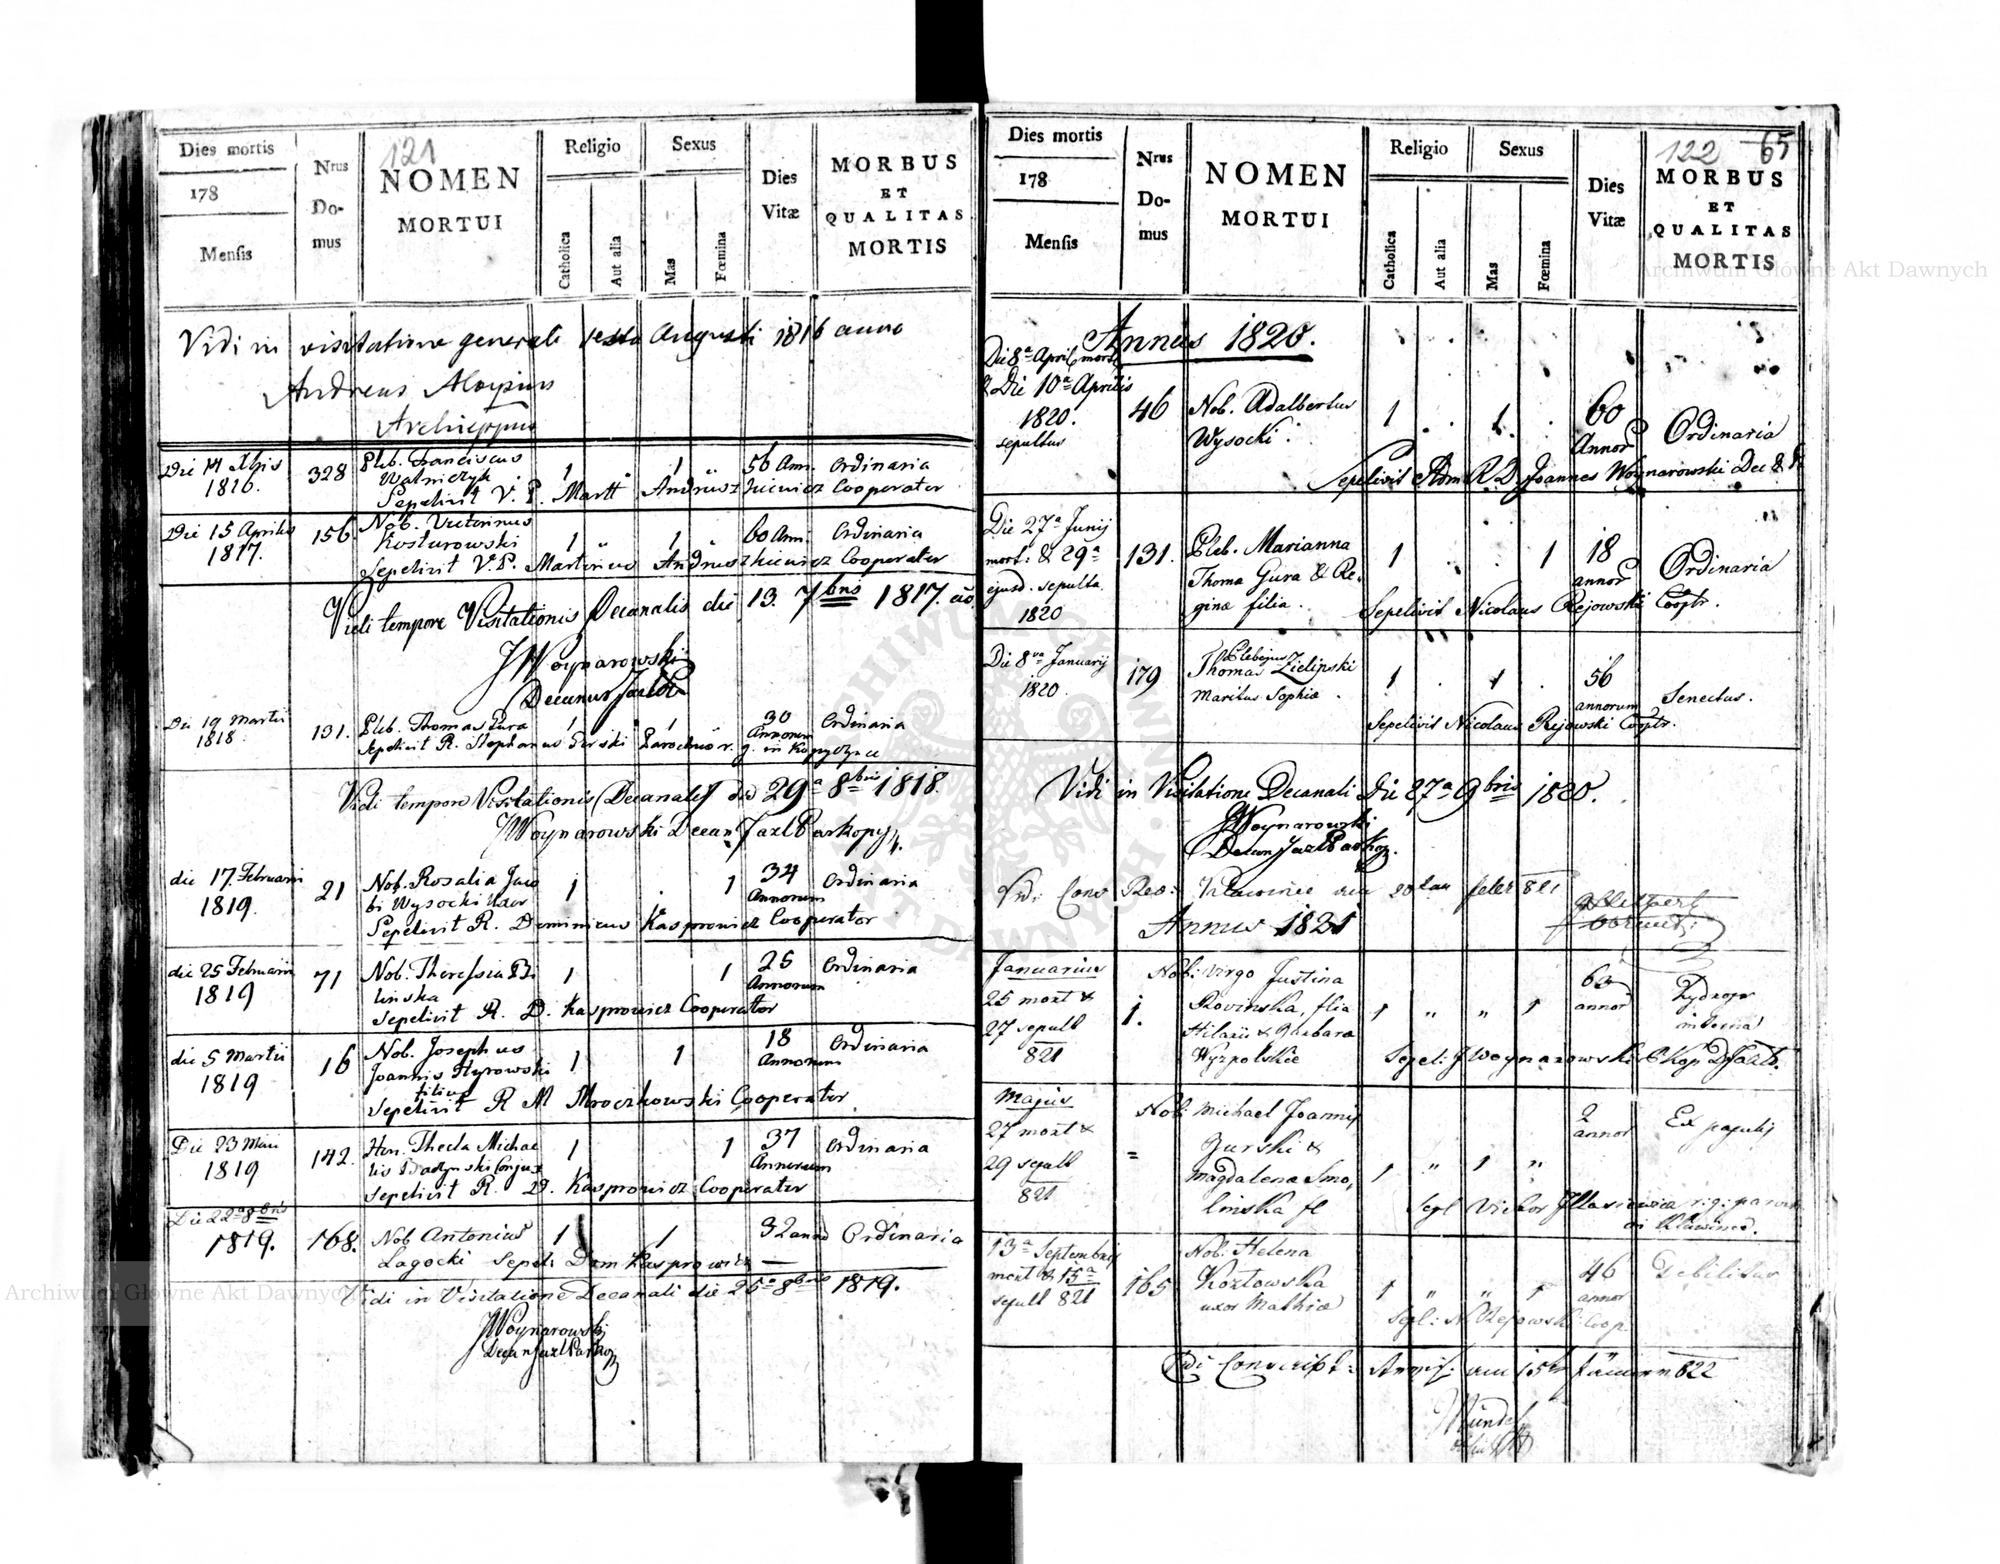 Dies mortis
178
Mensis
Nrus
Do-
mus
121
NOMEN
MORTUI
Religio
Catholica
Aut alia
Sexus
Mas
Fœmina
Dies
Vitæ
MORBUS
ET
QUALITAS
MORTIS
Vidi in visitatione generali sexta Augusti 1816 anno
Andreas Aloysius
Archieppus
Die 14 Xbris
1816.
328
Pleb. Franciscus
1 " 1 " 56 Ann. Ordinaria
Sepelivit V. P. Martt Andruszkiewicz Cooperator
Die 15 Aprilis
1817.
156.
Nob. Victorinus
Kosturowski
1 " 1 " 60 Ann. Ordinaria
Sepelivit V. P. Martinus Andruszkiewicz Cooperator
Vidi tempore Visitationis Decanalis die 13. 7bris 1817.
JWoynarowski
Decanus
Die 19 Martii
1818.
131.
Pleb. Thomas Gura
1 1 30 Annorum Ordinaria
Sepelivit R. Stephanus Gurski Parochus r. g. in Kopyczynce
Vidi tempore Visitationis Decanalis die 29a 8bris 1818.
JWoynarowski Decan Jazl Parkopy
die 17. Februarii
1819.
21
Nob. Rosalia Jaco
bi Wysocki Uxor
1 . 1 34 Annorum Ordinaria
Sepelivit R. Dominicus Kasprowicz Cooperator
die 25 Februarii
1819
71
Nob. Theressia Bi
linska
1 1 25 Annorum Ordinaria
Sepelivit R. D. Kasprowicz Cooperator
die 5 Martii
1819
16
Nob. Josephus
Joannis Hyrowski
filius
1 1 18 Annorum Ordinaria
Sepelivit R M Mroczkowski Cooperator
Die 23 Maii
1819
142.
Hon. Thecla Michae
lis Badynski Conjux
1 1 37 Annorum Ordinaria
Sepelivit R. D. Kasprowicz Cooperator
Die 22a 8bris
1819.
168.
Nob Antonius
1 1 32 annor Ordinaria
Lagocki Sepeli: Dom Kasprowicz
Vidi in Visitatione Decanali die 25a 8bris 1819.
JWoynarowski
Decan Jazl Parkop
Dies mortis
178
Mensis
Nrus
Do-
mus
NOMEN
MORTUI
Religio
Catholica
Aut alia
Sexus
Mas
Fœmina
Dies
Vitæ
122 65
MORBUS
ET
QUALITAS
MORTIS
Annus 1820.
Die 8a April mort
& Die 10a Aprilis
1820.
sepultus
46
Nob. Adalbertus
Wysocki.
1 . 1 . 60 Annor Ordinaria
Sepelivit Adm R D Joannes Woynarowski Dec & P.
Die 27a Junij
mort: & 29a
ejusd. sepulta
1820
131.
Pleb. Marianna
Thoma Gura & Re-
gina filia.
1 . . 1 18 annor Ordinaria
Sepelivit Nicolaus Rejowski Cooptr.
Die 8va Januarij
1820.
179
Plebejus
Thomas Zielinski
Maritus Sophia.
1 . 1 . 56 annorum Senectus.
Sepelivit Nicolaus Rejowski Cooptr.
Vidi in Visitatione Decanali Die 27a 9bris 1820.
JWoynarowski
Decan Jazl Parkop.
Vidi Cons Rev:
Annus 1821
Januarius
25 mort &
27 sepult
821
1.
Nob: Virgo Justina
Rovinska, filia
Hilarii & Barbara
Wyzpolskie
1 " " 1 annor
Sepel: J Woynarowski
Majus
27 mort &
29 sepult
821
=
Nob: Michael Joannis
Gurski &
Magdalena Smo,
linska fl
1 " 1 " 2 annor
13a Septembris
mort & 15a
sepult 821
165
Nob: Helena
Kozłowska
uxor Mathia
1 " " 1 46 annor Debilitas
Sepl: N Rejowski Coop.
Vidi Conscript:
Archiwum Główne Akt Dawnych
Archiwum Główne Akt Dawnych
ARCHIWUM GŁÓWNE AKT DAWNYCH